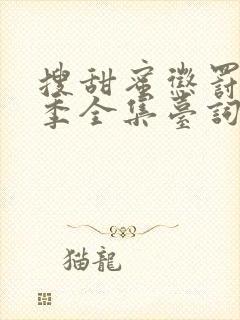 搜甜蜜懲罰
季全集臺詞
猫龍